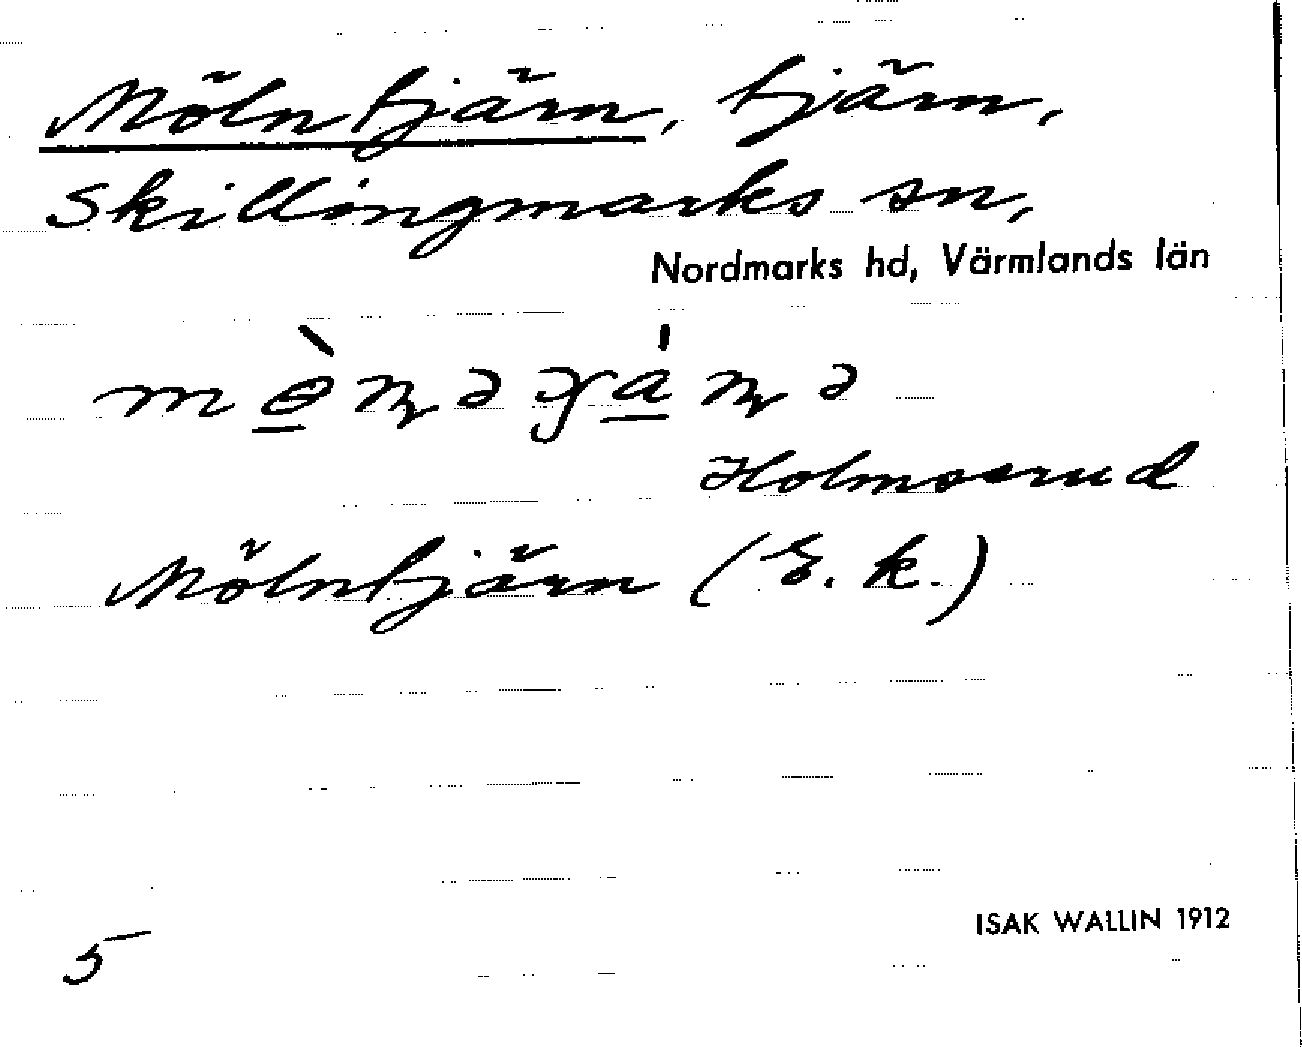 Mölntjärn, tjärn,
Skillingmarks sn,
Nordmarks hd, Värmlands län
Holmserud
Mölntjärn (E. k.)
ISAK WALLIN 1912
5